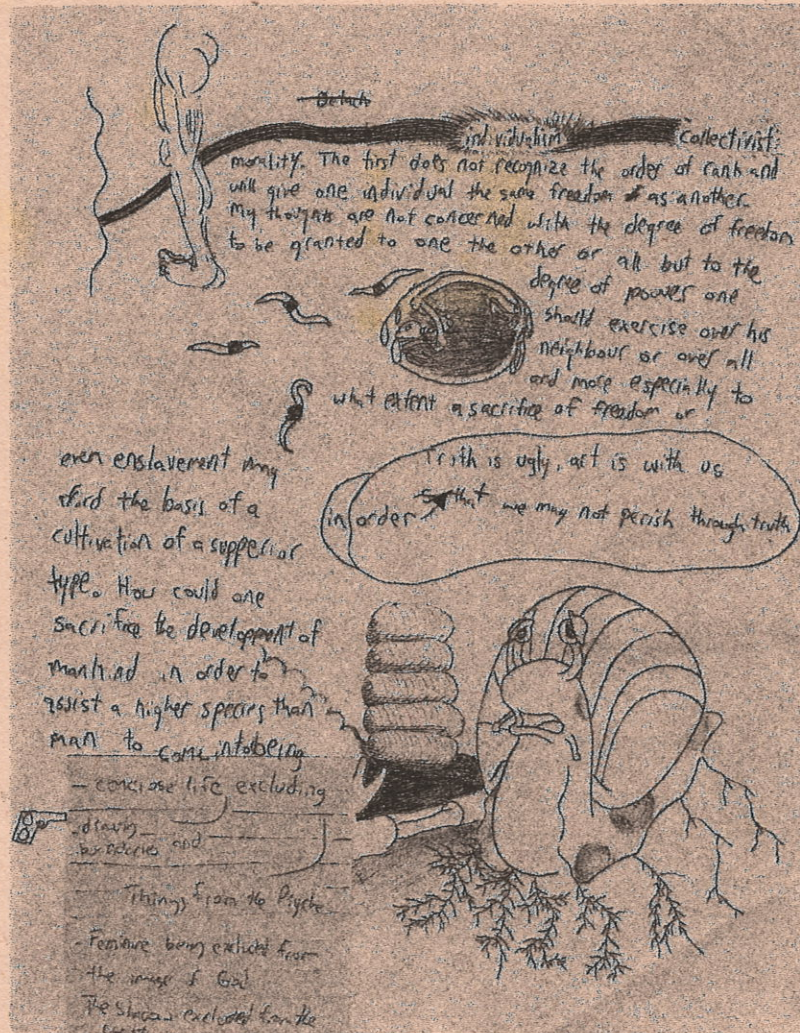 individualism collectivist
morality. The first does not recognize the order of rank and
will give one individual the same freedom as another.
My thoughts are not concerned with the degree of freedom
to be granted to one the other or all but to the
degree of power one
should exercise over his
neighbour or over all
and more especially to
what extent a sacrifice of freedom or
even enslavement may
the basis of a
cultivation of a supperior
type. How could one
sacrifice the development of
mankind in order to
assist a higher species than
man to come into being
Truth is ugly, art is with us
in order that we may not perish through truth
- conciose life excluding
- drawing
boundaries and
Things from the Psyche
- Feminine being exclude from
the image of God
The Shadow excluded from the